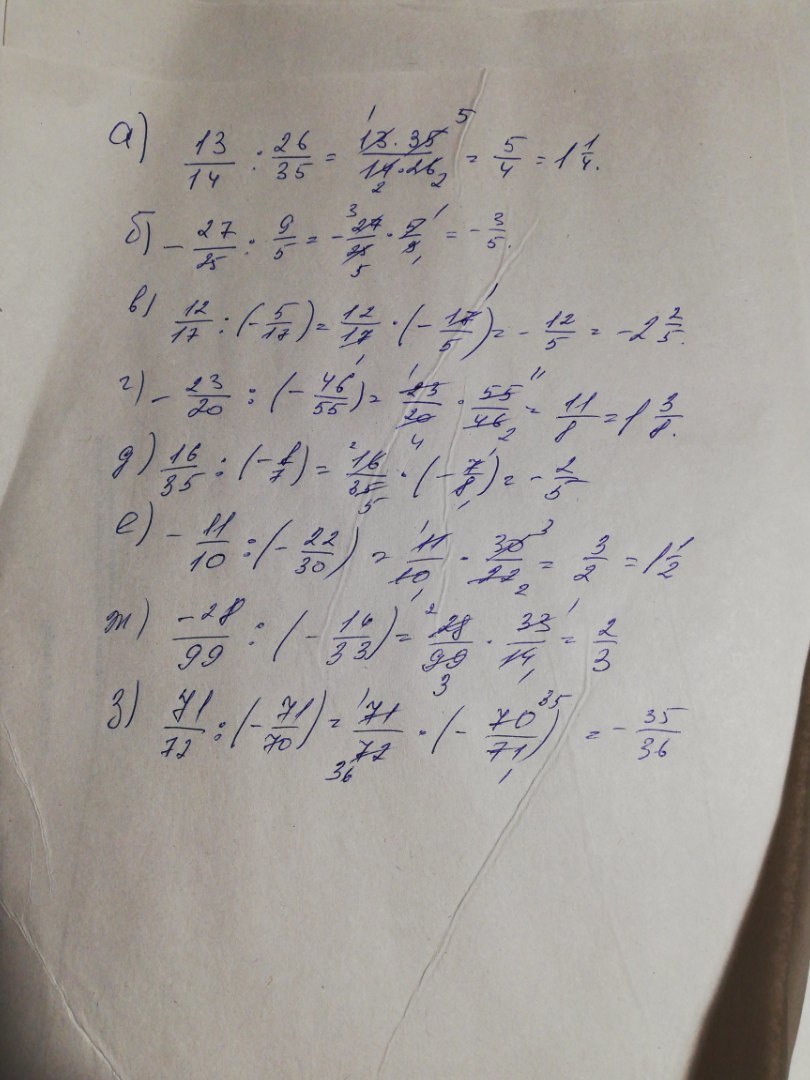 а) 13/14 : 26/35 = 13·35/14·26 = 5/4 = 1 1/4.
б) - 27/25 : 9/5 = - 27/25 · 5/9 = - 3/5.
в) 12/17 : (- 5/17) = 12/17 · (- 17/5) = - 12/5 = -2 2/5.
г) - 23/20 : (- 46/55) = 23/20 · 55/46 = 11/8 = 1 3/8.
д) 16/35 : (- 8/7) = 16/35 · (- 7/8) = - 2/5
е) - 11/10 : (- 22/30) = 11/10 · 30/22 = 3/2 = 1 1/2
ж) -28/99 : (- 14/33) = 28/99 · 33/14 = 2/3
з) 71/72 : (- 71/70) = 71/72 · (- 70/71) = - 35/36